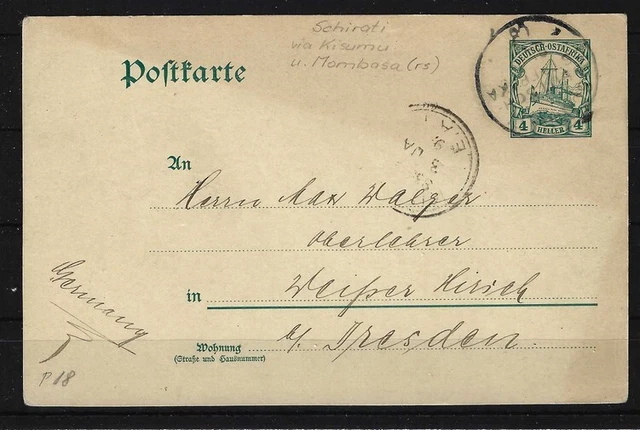 Schirati
via Kisumu
u. Mombasa (rs)
Postkarte
DEUTSCH-OSTAFRIKA
4 HELLER 4
E.A.
An
Herrn Max Walger
Oberlehrer
in Weißer Hirsch
b/ Dresden.
Wohnung
(Straße und Hausnummer)
Germany
P 18